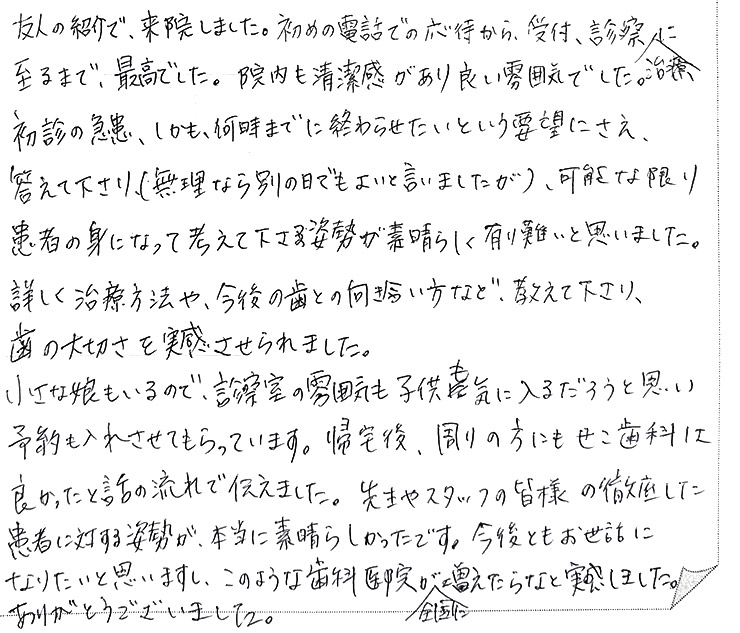 友人の紹介で、来院しました。初めの電話での応待から、受付、診察、治療に
至るまで、最高でした。院内も清潔感があり良い雰囲気でした。
初診の急患、しかも、何時までに終わらせたいという要望にさえ、
答えて下さり、(無理なら別の日でもよいと言いましたが)、可能な限り
患者の身になって考えて下さる姿勢が素晴らしく有り難いと思いました。
詳しく治療方法や、今後の歯との向き合い方など、教えて下さり、
歯の大切さを実感させられました。
小さな娘もいるので、診察室の雰囲気も子供も気に入るだろうと思い
予約も入れさせてもらっています。帰宅後、周りの方にもせこ歯科は
良かったと話の流れで伝えました。先生やスタッフの皆様の徹底した
患者に対する姿勢が、本当に素晴らしかったです。今後ともお世話に
なりたいと思いますし、このような歯科医院が全国に増えたらなと実感しました。
ありがとうございました。